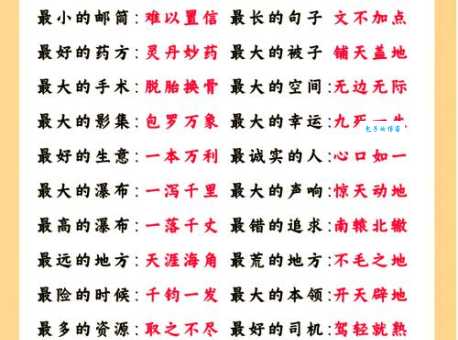 最小的邮筒:难以置信 最长的句子 文不加点
最好的药方:灵丹妙药 最大的被子 铺天盖地
最大的手术:脱胎换骨 最大的空间:无边无际
最大的影集:包罗万象 最大的幸运:九死一生
最好的生意:一本万利 最诚实的人:心口如一
最大的瀑布:一泻千里 最大的声响:惊天动地
最高的瀑布:一落千丈 最错的追求:南辕北辙
最远的地方:天涯海角 最荒的地方:不毛之地
最险的时候:千钧一发 最大的本领:开天辟地
最多的资源:取之不尽 最好的司机:驾轻就熟